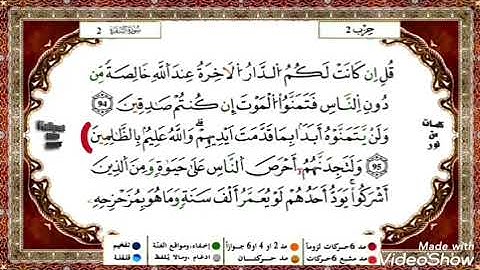 حزب 2
سورة البقرة 2
قُلِ اِن كَانَتْ لَكُمُ الدَّارُ الَاخِرَةُ عِندَ اللَّهِ خَالِصَةً مِّن
دُونِ النَّاسِ فَتَمَنَّوُا الْمَوْتَ إِن كُنتُمْ صَادِقِينَ 94
وَلَنْ يَّتَمَنَّوْهُ أَبَدًا بِمَا قَدَّمَتَ اَيْدِيهِمْ وَاللَّهُ عَلِيمٌ بِالظَّالِمِينَ
95 وَلَتَجِدَنَّهُمُ أَحْرَصَ النَّاسِ عَلَى حَيَوٰةٍ وَمِنَ الَّذِينَ
أَشْرَكُوا يَوَدُّ أَحَدُهُمْ لَوْ يُعَمَّرُ أَلْفَ سَنَةٍ وَمَا هُوَ بِمُزَحْزِحِهِ
كلمات
من
نور
مد 6 حركات لزوماً مد 2 او 4 او 6 جوازاً إخفاء، ومواقع الغنة تفخيم
مد مشبع 6 حركات مد حركتان ادغام، ومالا يلفظ قلقلة
Made with
VideoShow